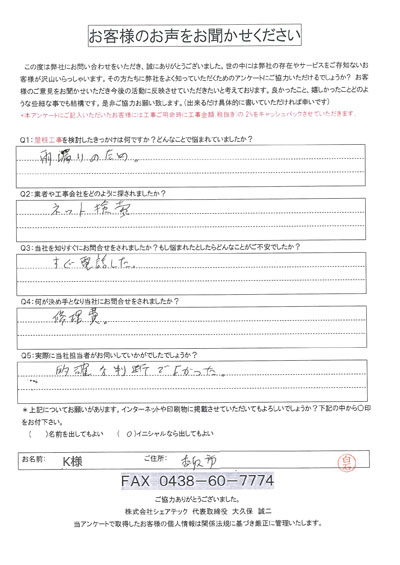 お客様のお声をお聞かせください
この度は弊社にお問い合わせをいただき、誠にありがとうございます。世の中には弊社の存在やサービスをご存知ないお
客様が沢山いらっしゃいます。その方たちに弊社をよく知っていただくためのアンケートにご協力いただけるでしょうか? お客
様のご意見をお聞かせいただき今後の活動に反映させていただきたいと考えております。良かったこと、嬉しかったことどのよ
うな些細な事でも結構です。是非ご協力お願い致します。(出来るだけ具体的に書いていただければ幸いです)
*本アンケートにご記入いただいたお客様には工事ご用命時に工事金額(税抜き)の2%をキャッシュバックさせていただきます.
Q1:屋根工事を検討したきっかけは何ですか?どんなことで悩まれていましたか?
雨漏りのため。
Q2:業者や工事会社をどのように探されましたか?
ネット検索
Q3:当社を知りすぐにお問合せをされましたか?もし悩まれたとしたらどんなことがご不安でしたか?
すぐ電話した。
Q4:何が決め手となり当社にお問合せをされましたか?
修理費。
Q5:実際に当社担当者がお伺いしていかがでしたでしょうか?
的確な判断でよかった。
*上記についてお願いがあります。インターネットや印刷物に掲載させていただいてもよろしいでしょうか?下記の中から〇印
をお付下さい。
( )名前を出してもよい ( O )イニシャルなら出してもよい
お名前: K様 ご住所: 香取市
FAX 0438-60-7774
ご協力ありがとうございました。
株式会社シェアテック 代表取締役 大久保 誠二
当アンケートで取得したお客様の個人情報は関係法規に基づき厳正に管理いたします。